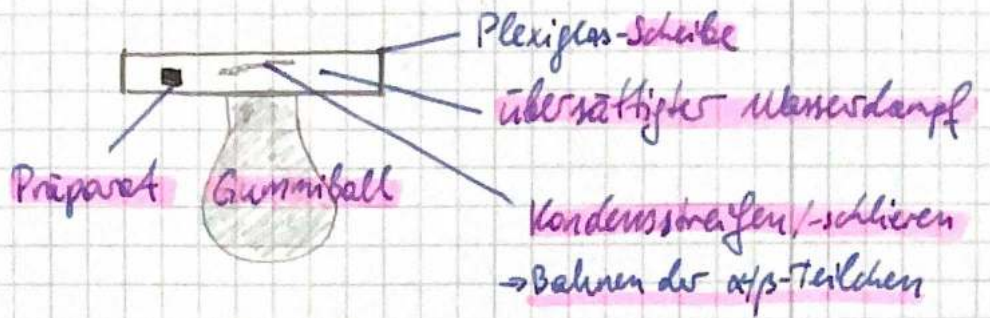 Plexiglas-Scheibe
übersättigter Wasserdampf
Präparat Gummiball
Kondensstreifen/-schlieren
→ Bahnen der α/β-Teilchen